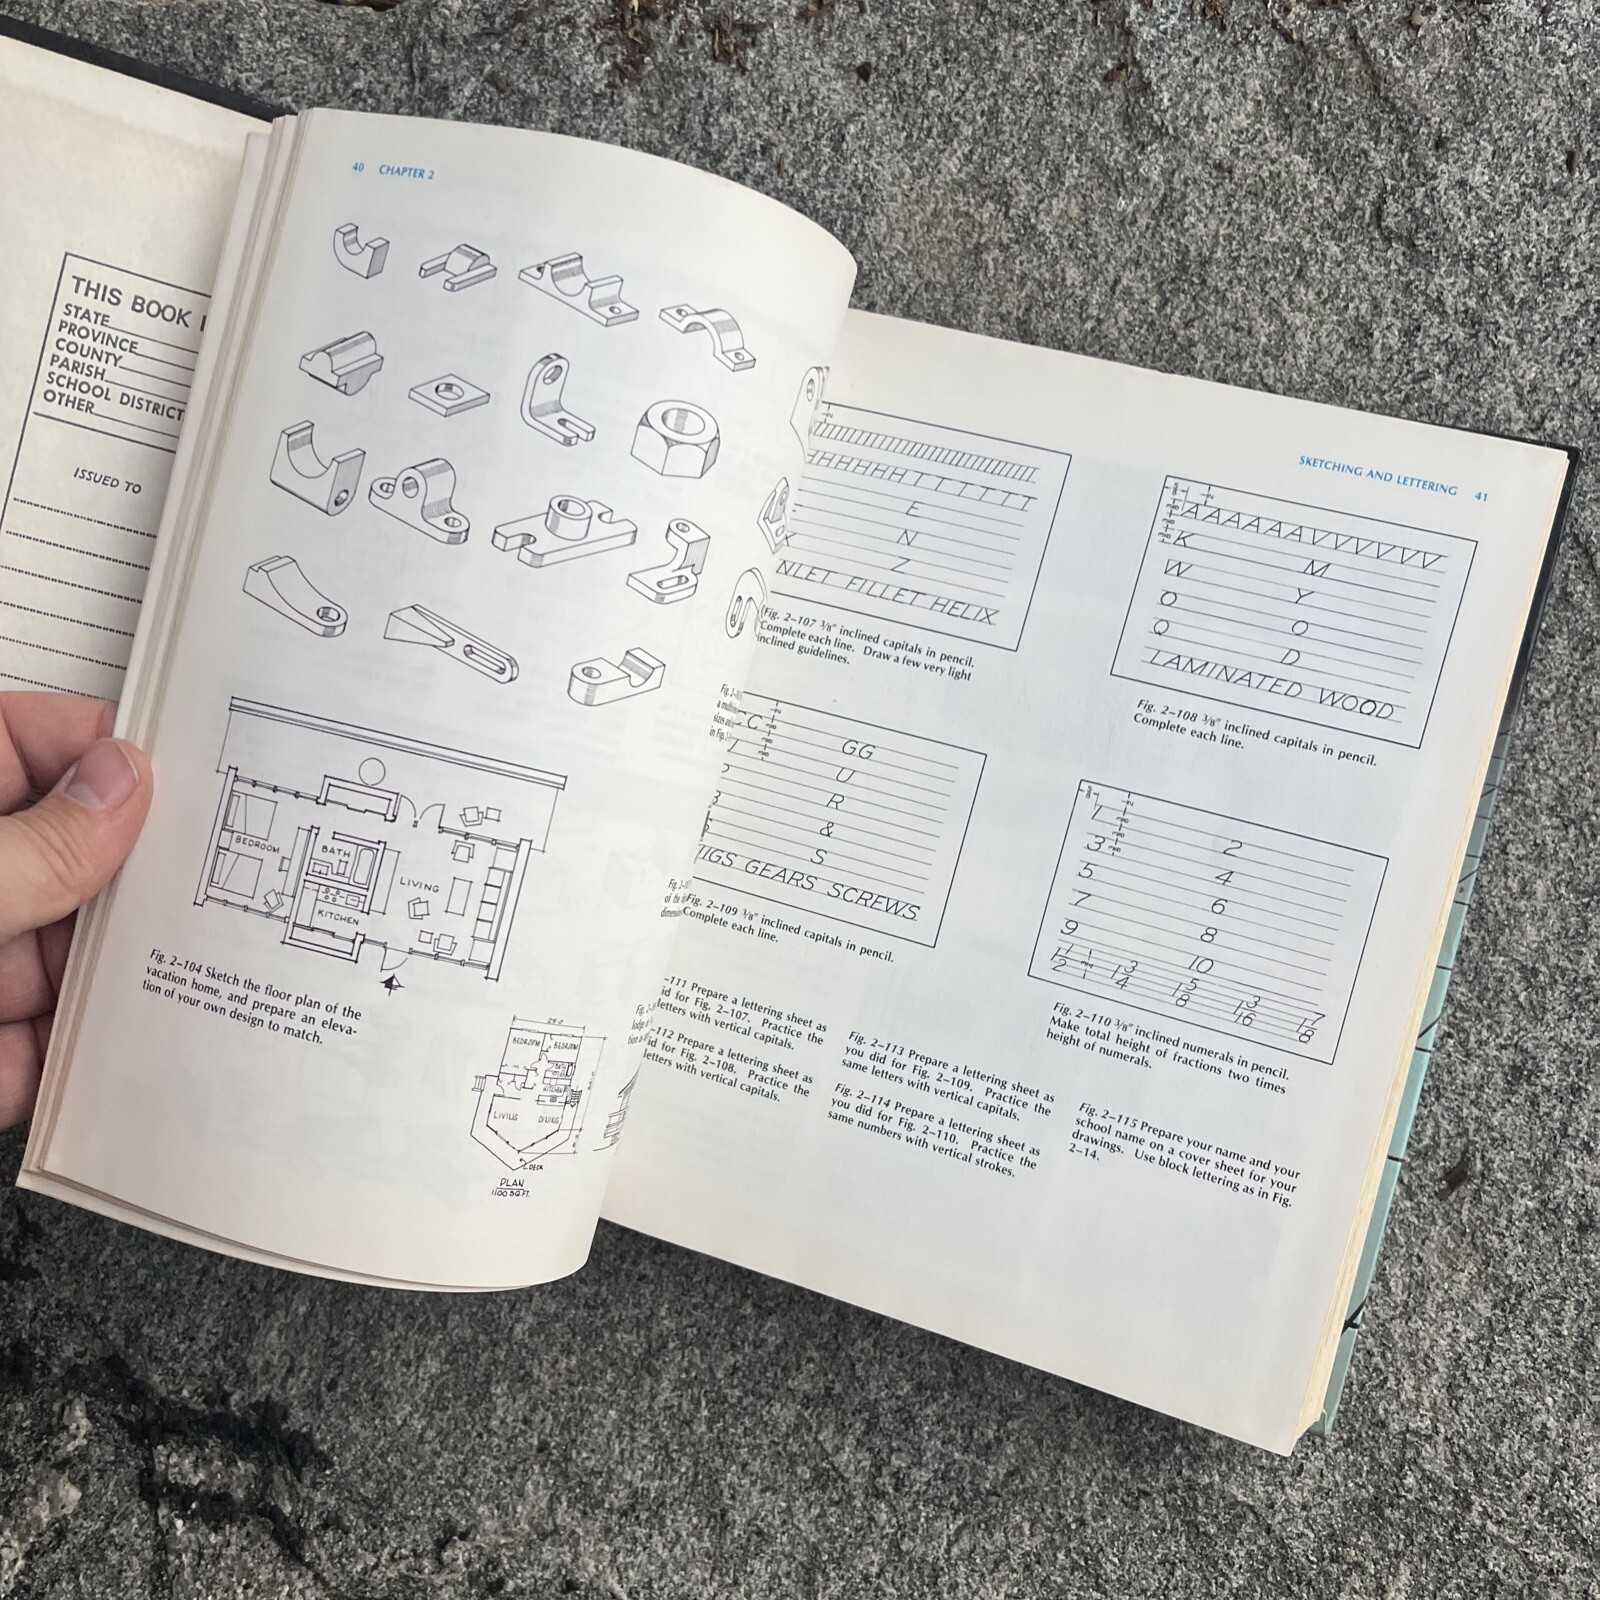 THIS BOOK
STATE
PROVINCE
COUNTY
PARISH
SCHOOL DISTRICT
OTHER
ISSUED TO
40 CHAPTER 2
BEDROOM
BATH
LIVING
KITCHEN
Fig. 2–104 Sketch the floor plan of the
vacation home, and prepare an eleva-
tion of your own design to match.
BEDROOM BEDROOM
KITCHEN
LIVING DINING
DECK
PLAN
1100 SQ. FT.
SKETCHING AND LETTERING 41
HHHHHHTTTTTTT
E
N
Z
NLET FILLET HELIX
Fig. 2–107 3/8" inclined capitals in pencil.
Complete each line. Draw a few very light
inclined guidelines.
AAAAAAVVVVVV
K M
W Y
O O
Q D
LAMINATED WOOD
Fig. 2–108 3/8" inclined capitals in pencil.
Complete each line.
C GG
U
R
&
S
JIGS GEARS SCREWS
Fig. 2–109 3/8" inclined capitals in pencil.
Complete each line.
1 2
3 4
5 6
7 8
9 10
1 1/2 1 3/4 1 5/8 1 3/16 1 7/8
Fig. 2–110 3/8" inclined numerals in pencil.
Make total height of fractions two times
height of numerals.
–111 Prepare a lettering sheet as
id for Fig. 2–107. Practice the
letters with vertical capitals.
–112 Prepare a lettering sheet as
id for Fig. 2–108. Practice the
letters with vertical capitals.
Fig. 2–113 Prepare a lettering sheet as
you did for Fig. 2–109. Practice the
same letters with vertical capitals.
Fig. 2–114 Prepare a lettering sheet as
you did for Fig. 2–110. Practice the
same numbers with vertical strokes.
Fig. 2–115 Prepare your name and your
school name on a cover sheet for your
drawings. Use block lettering as in Fig.
2–14.